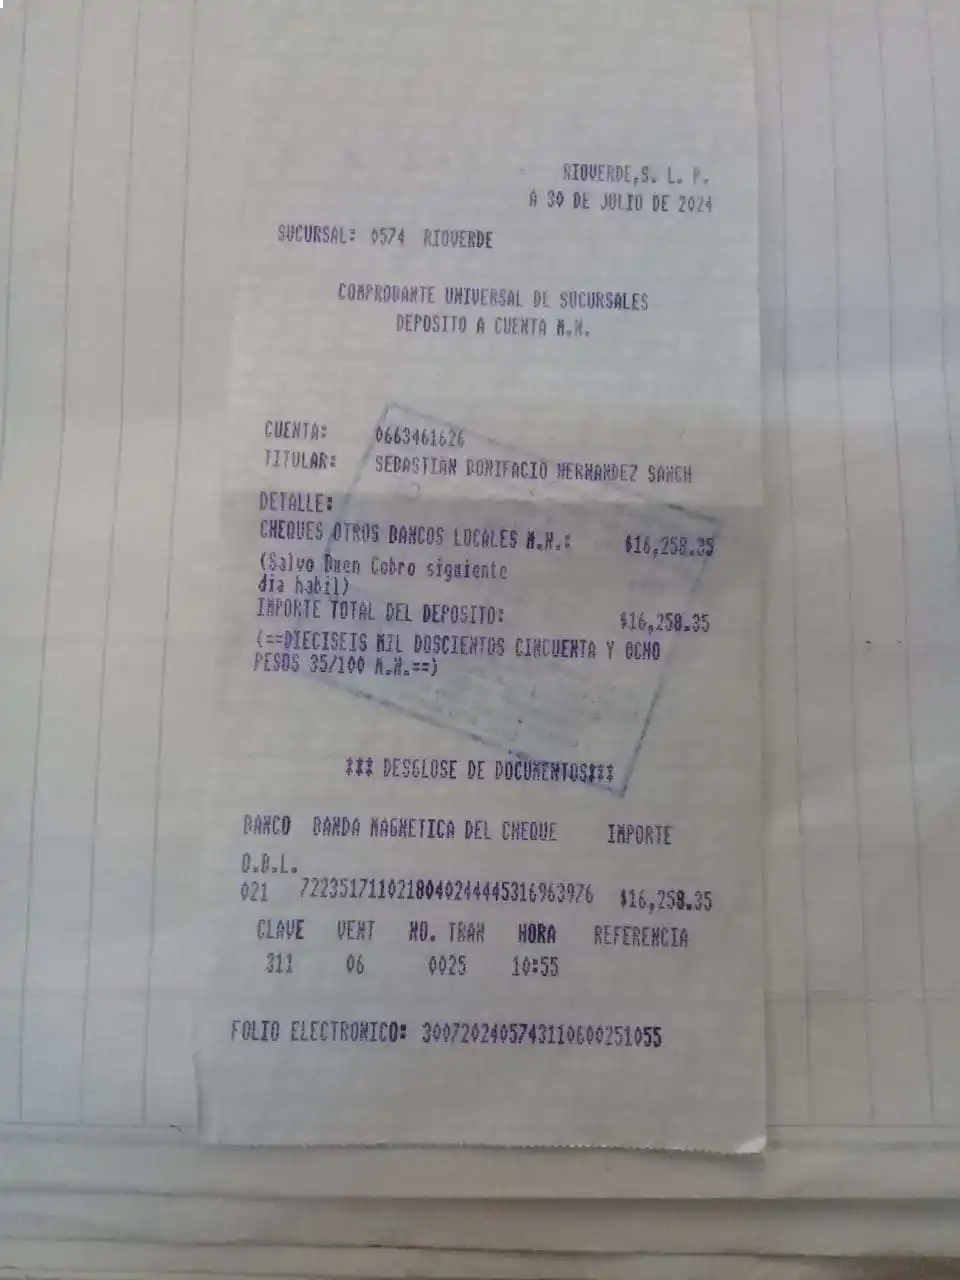 RIOVERDE,S. L. P.
A 30 DE JULIO DE 2024
SUCURSAL: 0574 RIOVERDE
COMPROBANTE UNIVERSAL DE SUCURSALES
DEPOSITO A CUENTA M.N.
CUENTA: 0663461626
TITULAR: SEBASTIAN BONIFACIO HERNANDEZ SANCH
DETALLE:
CHEQUES OTROS BANCOS LOCALES M.N.: $16,258.35
(Salvo Buen Cobro siguiente
dia habil)
IMPORTE TOTAL DEL DEPOSITO: $16,258.35
(==DIECISEIS MIL DOSCIENTOS CINCUENTA Y OCHO
PESOS 35/100 M.N.==)
*** DESGLOSE DE DOCUMENTOS***
BANCO BANDA MAGNETICA DEL CHEQUE IMPORTE
O.B.L.
021 7223517110218040244445316963976 $16,258.35
CLAVE VENT NO. TRAN HORA REFERENCIA
311 06 0025 10:55
FOLIO ELECTRONICO: 3007202405743110600251055